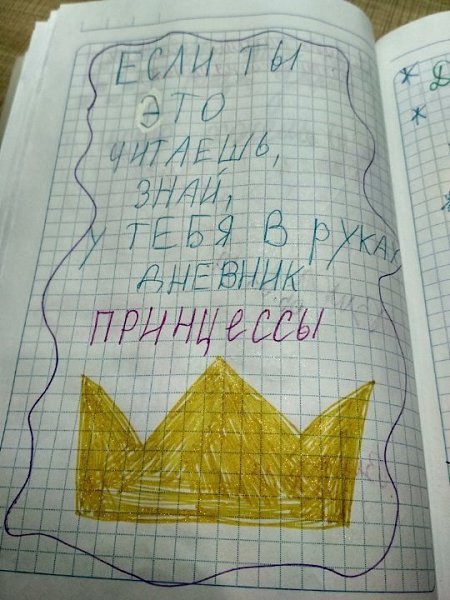 ЕСЛИ ТЫ
ЭТО
ЧИТАЕШЬ,
ЗНАЙ,
У ТЕБЯ В РУКАХ
ДНЕВНИК
ПРИНЦЕССЫ